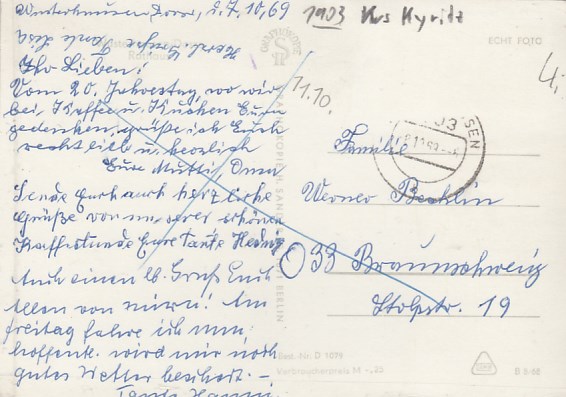 Wusterhausen Dosse, d. 7.10.69
1903 Krs Kyritz
Herzl. Grüße Tante Lisa
ECHT FOTO
Ihr Lieben!
Vom 20. Jahrestag, wo wir
bei Kaffee u. Kuchen Eurer
gedenken, grüße ich Euch
recht lieb u. herzlich
Eure Mutti, Oma
11.10.
Sende Euch auch herzliche
Grüße von unserer schönen
Kaffeestunde Eure Tante Hedwig
Auch einen lb. Gruß Euch
allen von mir! Am
Freitag fahre ich nun,
hoffentl. wird mir noch
gutes Wetter beschert. –
Tante
Familie
Werner Becklin
33 Braunschweig
Stolpstr. 19
Best. Nr. D 1079
Verbraucherpreis M -,25
BERLIN